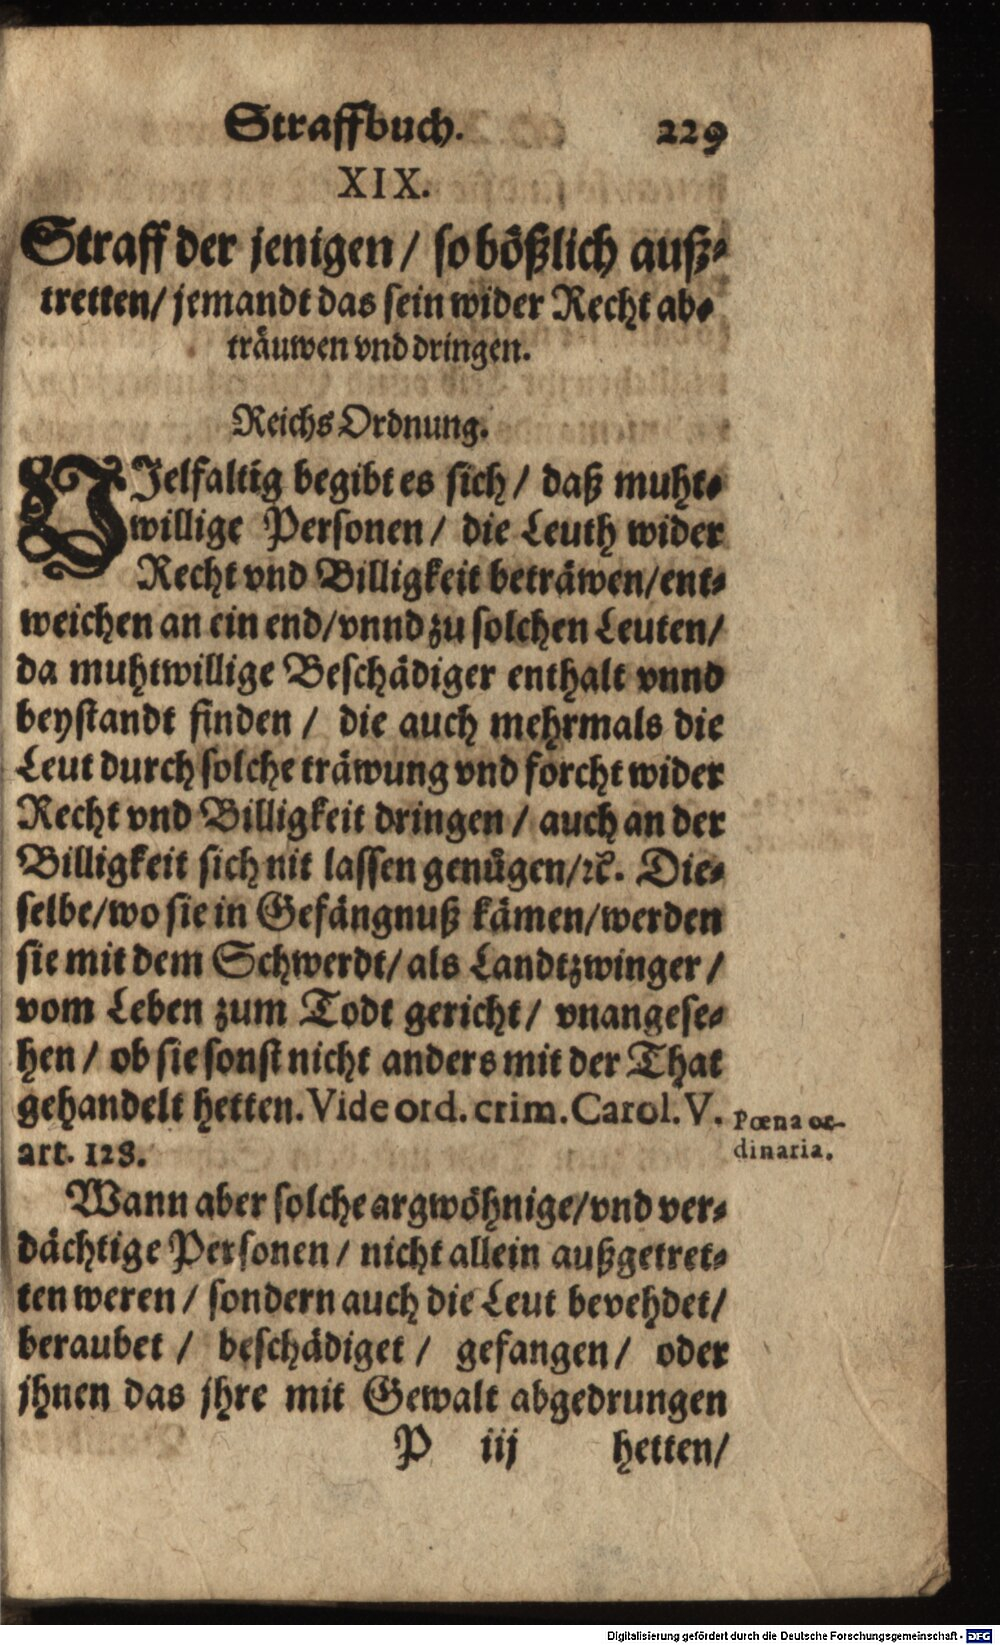 Straffbuch. 229
XIX.
Straff der jenigen / so bößlich auß-
tretten/ jemandt das sein wider Recht ab-
träuwen vnd dringen.
Reichs Ordnung.
VJelfaltig begibt es sich / daß muht-
willige Personen / die Leuth wider
Recht vnd Billigkeit beträwen/ent-
weichen an ein end/vnnd zu solchen Leuten/
da muhtwillige Beschädiger enthalt vnnd
beystandt finden / die auch mehrmals die
Leut durch solche träwung vnd forcht wider
Recht vnd Billigkeit dringen / auch an der
Billigkeit sich nit lassen genügen/ꝛc. Die-
selbe/wo sie in Gefängnuß kämen/werden
sie mit dem Schwerdt/ als Landtzwinger /
vom Leben zum Todt gericht / vnangese-
hen / ob sie sonst nicht anders mit der That
gehandelt hetten. Vide ord. crim. Carol. V.
art. 128.
Pœna or-
dinaria.
Wann aber solche argwöhnige/vnd ver-
dächtige Personen / nicht allein außgetret-
ten weren / sondern auch die Leut bevehdet/
beraubet / beschädiget / gefangen / oder
jhnen das jhre mit Gewalt abgedrungen
P iij hetten/
Digitalisierung gefördert durch die Deutsche Forschungsgemeinschaft - DFG